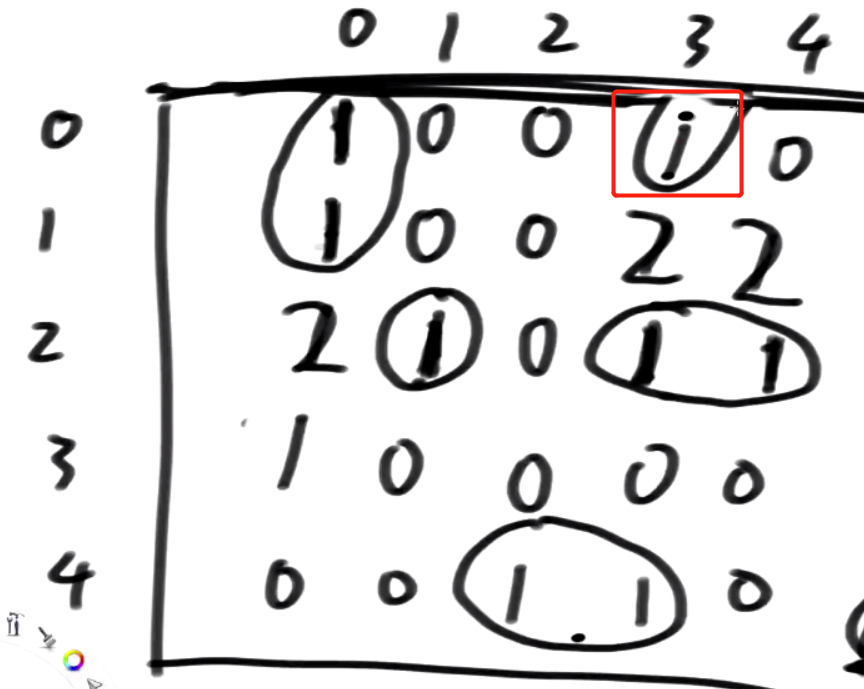 0 1 2 3 4
0 1 0 0 1 0
1 1 0 0 2 2
2 2 1 0 1 1
3 1 0 0 0 0
4 0 0 1 1 0